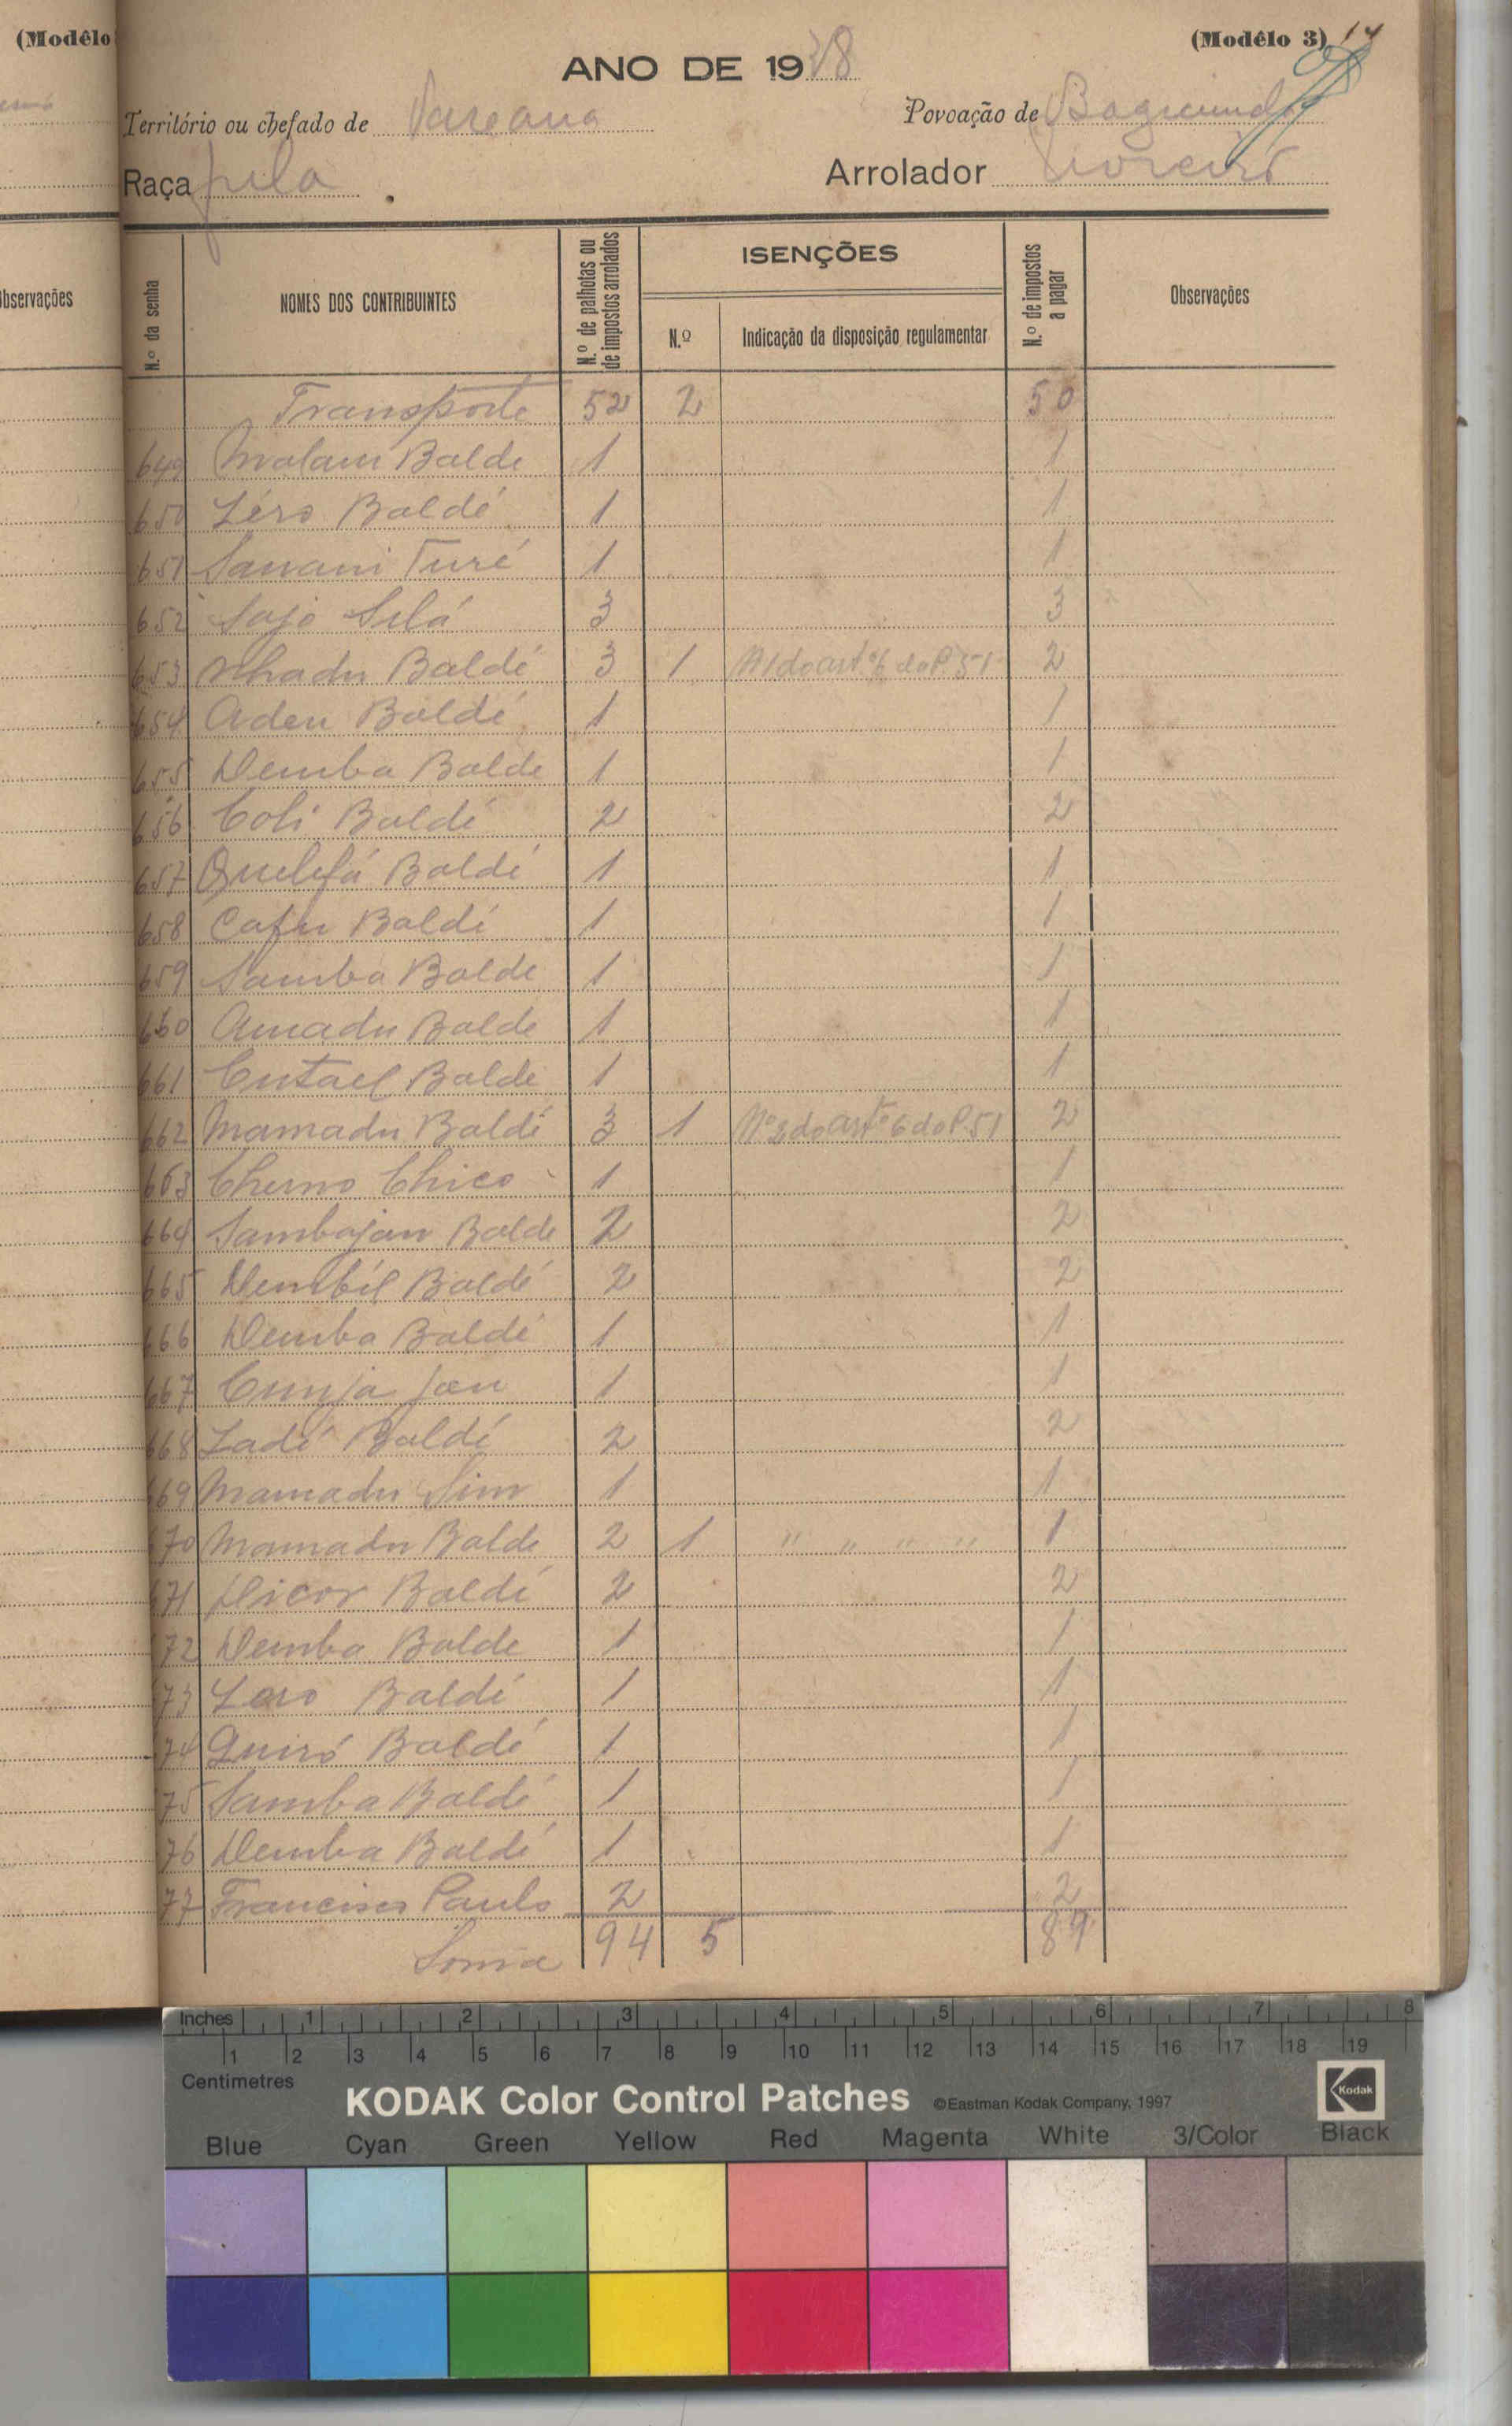 (Modêlo
(Modêlo 3) 14
ANO DE 1938
Território ou chefado de
Povoação de
Raça fula
Arrolador
Observações
N.º da senha
NOMES DOS CONTRIBUINTES
N.º de palhotas ou de impostos arrolados
ISENÇÕES
N.º
Indicação da disposição regulamentar
N.º de impostos a pagar
Observações
Transporte 52 2 50
649 Malam Balde 1 1
650 Léro Baldé 1 1
651 Sanani Turé 1 1
652 Sajo Silá 3 3
653 Baldé 3 1 Nº 1 do artº 6 do P. 51 2
654 Adeu Baldé 1 1
655 Demba Balde 1 1
656 Coli Baldé 2 2
657 Quelifá Baldé 1 1
658 Cafu Baldé 1 1
659 Samba Balde 1 1
660 Amadu Balde 1 1
661 Cutael Balde 1 1
662 Mamadu Baldé 3 1 Nº 2 do artº 6 do P. 51 2
663 Cherno Chico 1 1
664 Sambajan Balde 2 2
665 Dembél Baldé 2 2
666 Demba Baldé 1 1
667 Cunja Jau 1 1
668 Ladé Baldé 2 2
669 Mamadu 1 1
70 Mamadu Balde 2 1 " " " " 1
71 Dicor Baldé 2 2
72 Demba Balde 1 1
73 Lero Baldé 1 1
74 Quiró Baldé 1 1
75 Samba Baldé 1 1
76 Demba Baldé 1 1
77 Francisco Paulo 2 2
Soma 94 5 89
Inches 1 2 3 4 5 6 7 8
1 2 3 4 5 6 7 8 9 10 11 12 13 14 15 16 17 18 19
Centimetres
KODAK Color Control Patches ©Eastman Kodak Company, 1997 Kodak
Blue Cyan Green Yellow Red Magenta White 3/Color Black